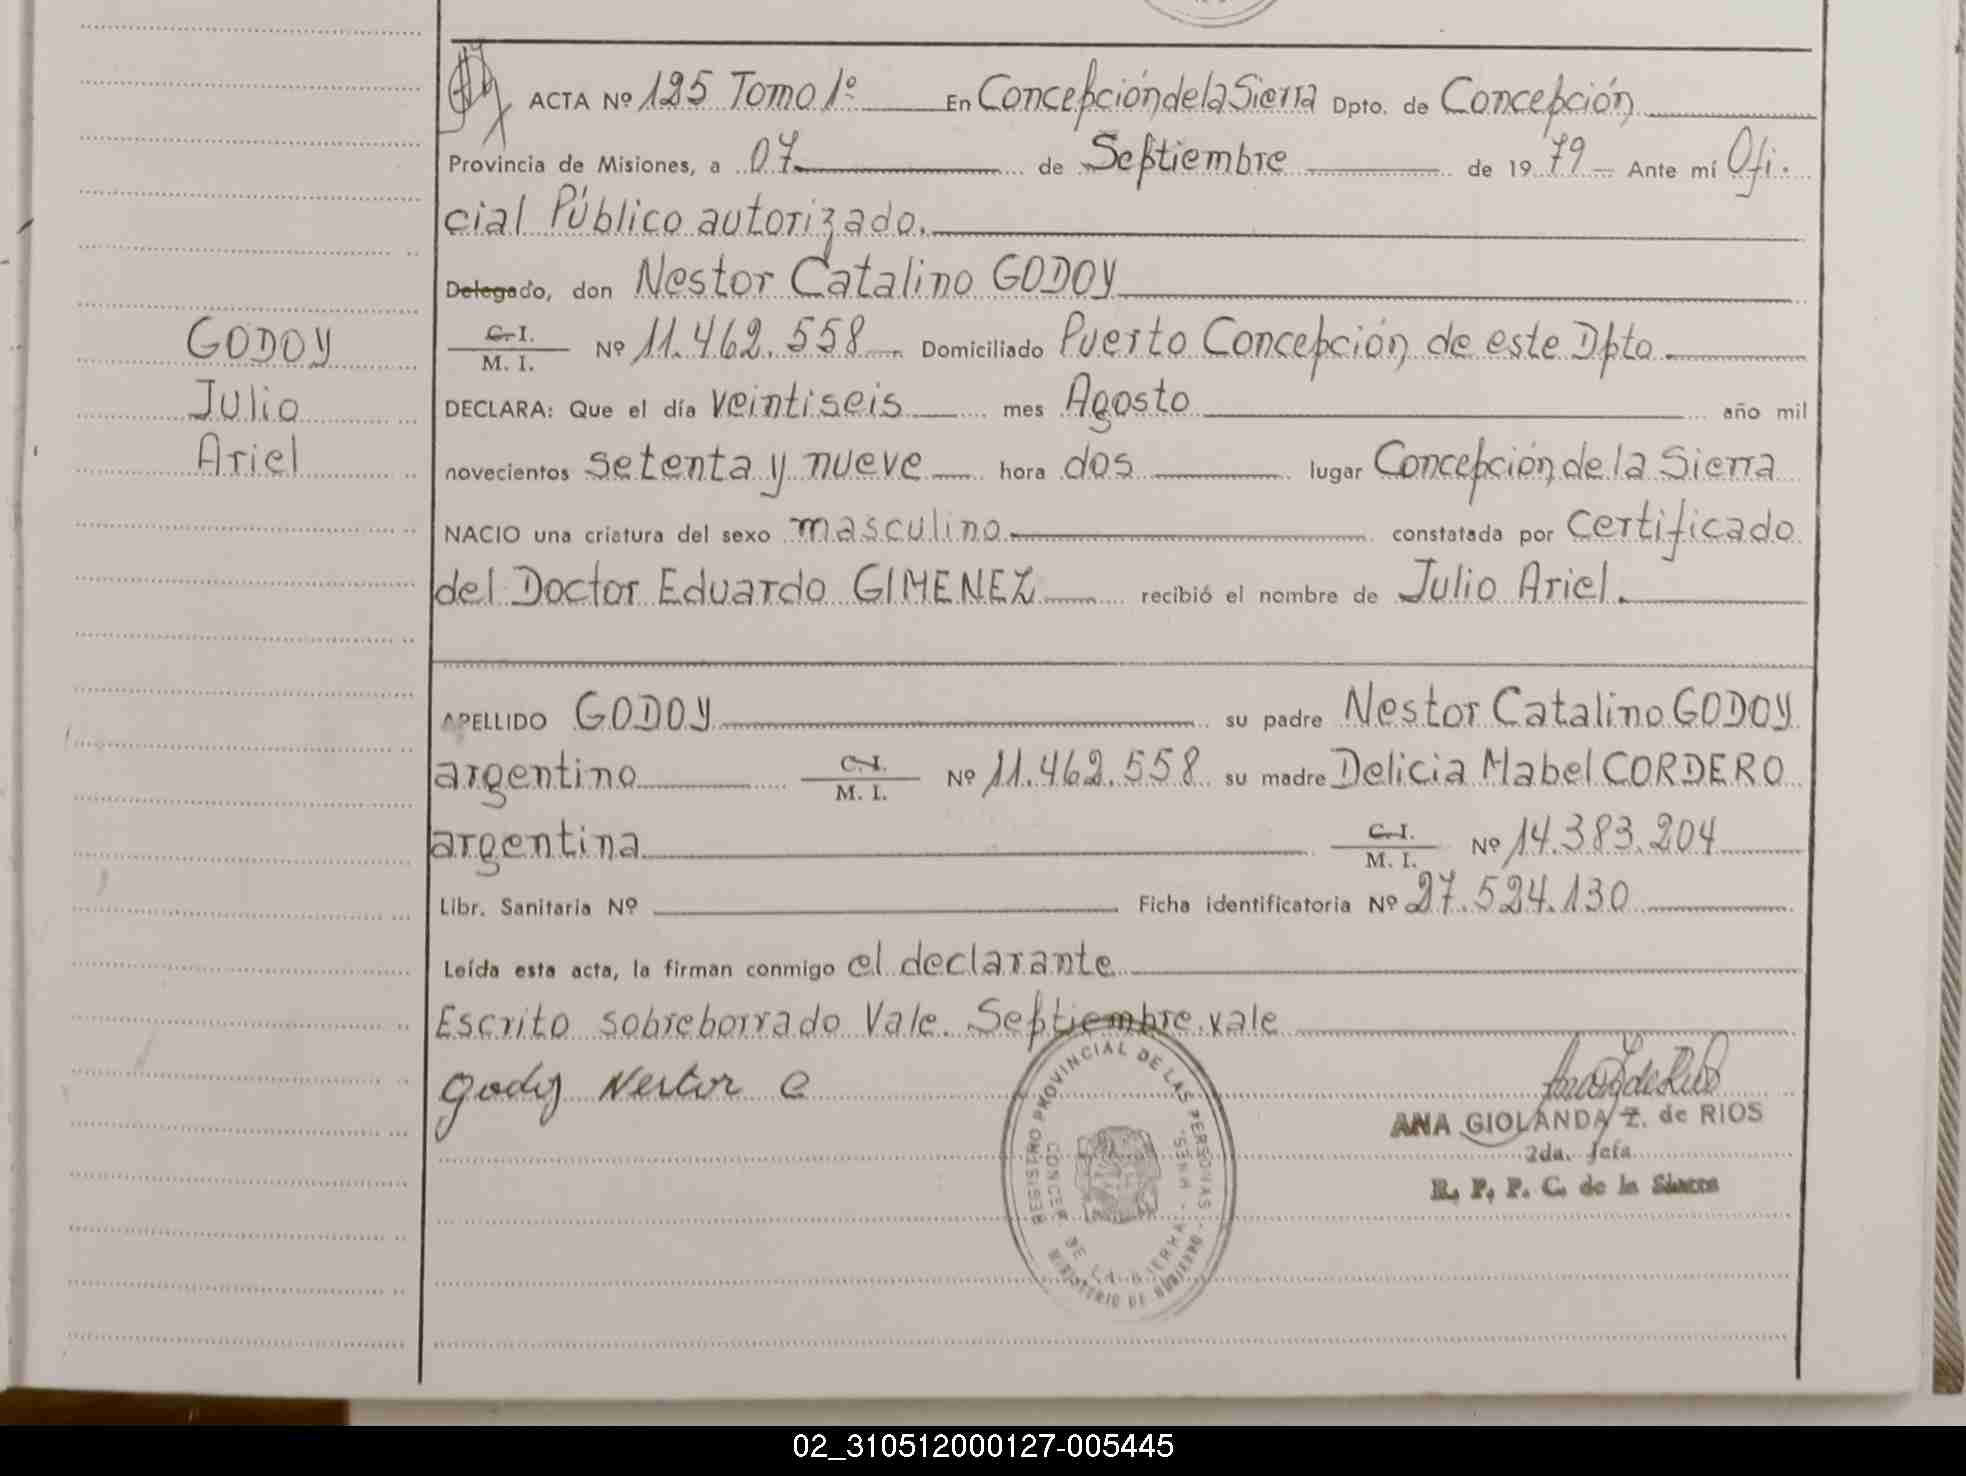 ACTA Nº 125 Tomo 1º En Concepción de la Sierra Dpto. de Concepción
Provincia de Misiones, a 07 de Septiembre de 1979 Ante mí Ofi.
cial Público autorizado.
Delegado, don Nestor Catalino GODOY
C.I. M. I. Nº 11.462.558 Domiciliado Puerto Concepción de este Dpto
DECLARA: Que el día veintiseis mes Agosto año mil
novecientos setenta y nueve hora dos lugar Concepción de la Sierra
NACIO una criatura del sexo masculino constatada por certificado
del Doctor Eduardo GIMENEZ recibió el nombre de Julio Ariel.
GODOY
Julio
Ariel
APELLIDO GODOY su padre Nestor Catalino GODOY
argentino C.I. M. I. Nº 11.462.558 su madre Delicia Mabel CORDERO
argentina C.I. M. I. Nº 14.383.204
Libr. Sanitaria Nº Ficha identificatoria Nº 27.524.130
Leída esta acta, la firman conmigo el declarante
Escrito sobreborrado Vale. Septiembre. vale
Godoy Nestor C
REGISTRO PROVINCIAL DE LAS PERSONAS
MINISTERIO DE GOBIERNO
DE LA SIERRA
ANA GIOLANDA Z. de RIOS
2da. Jefa
R. P. P. C. de la Sierra
02_310512000127-005445